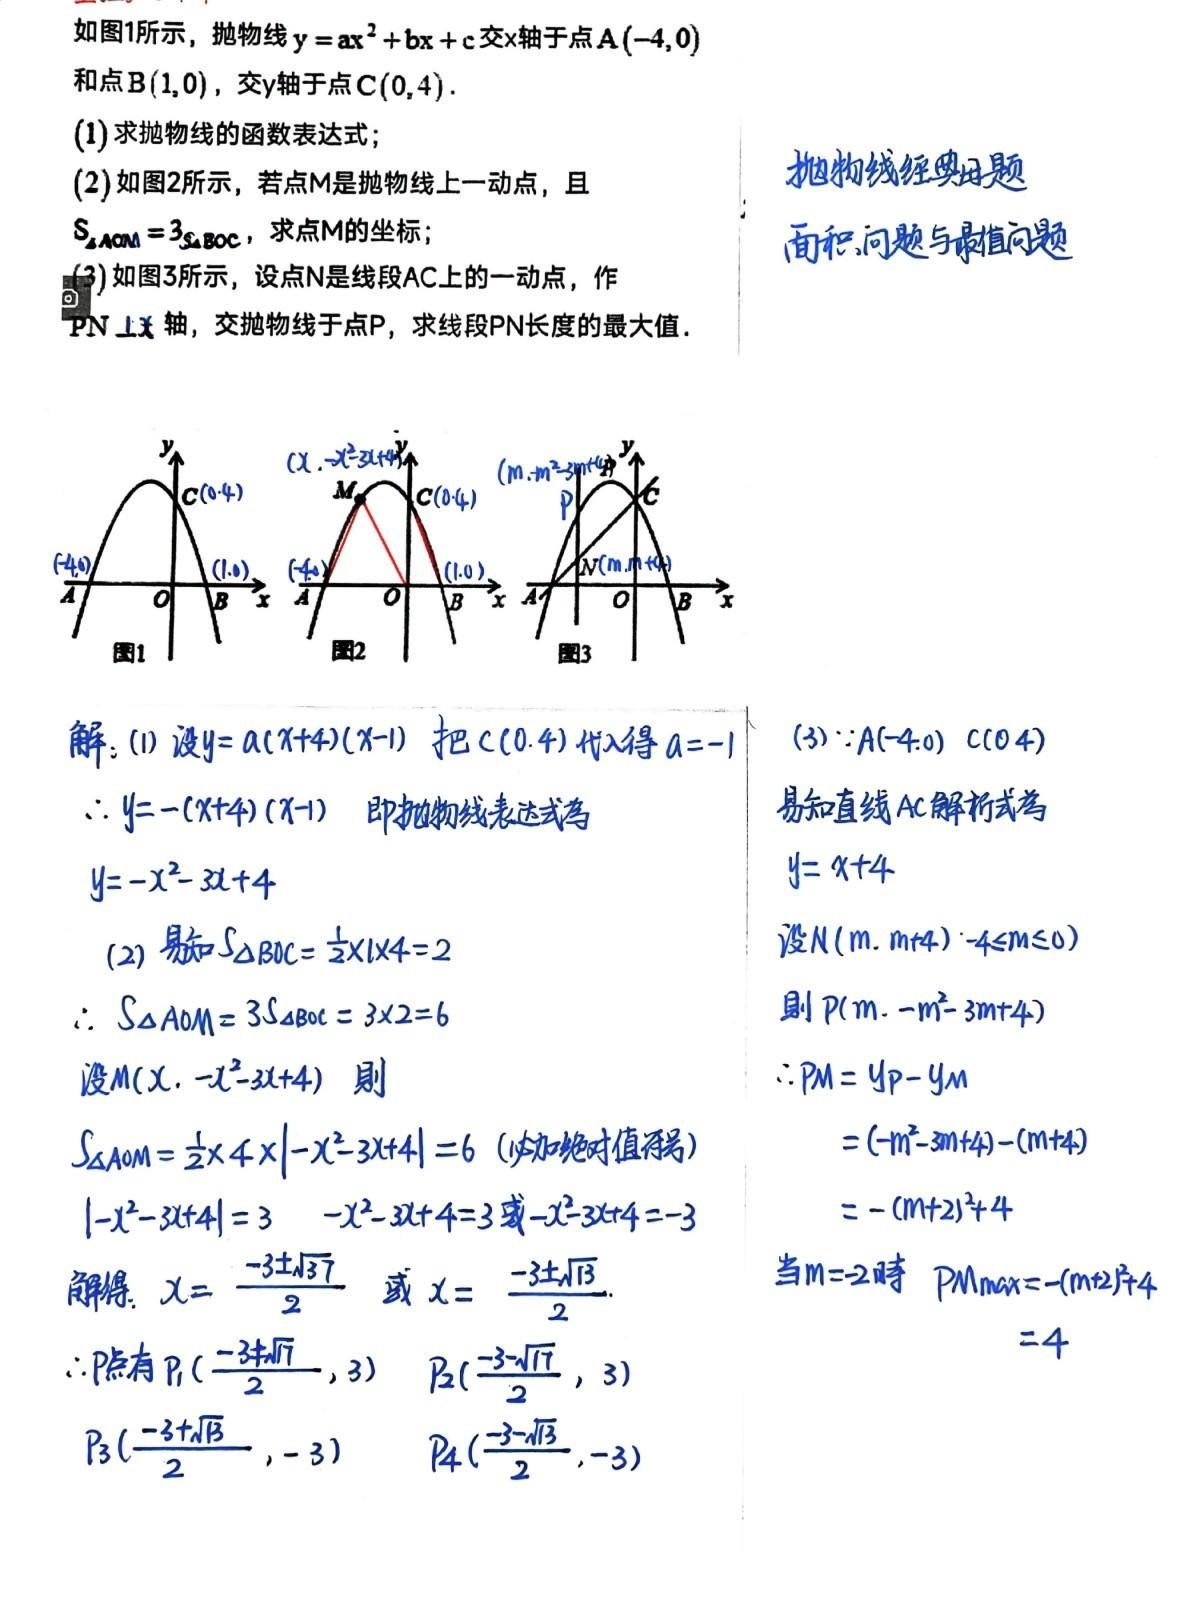 如图1所示，抛物线y=ax²+bx+c交x轴于点A(-4,0)
和点B(1,0)，交y轴于点C(0,4).
(1)求抛物线的函数表达式；
(2)如图2所示，若点M是抛物线上一动点，且
S△AOM=3S△BOC，求点M的坐标；
(3)如图3所示，设点N是线段AC上的一动点，作
PN⊥x轴，交抛物线于点P，求线段PN长度的最大值.
抛物线经典母题
面积问题与最值问题
y C(0.4) (-4.0) (1.0) A O B x
图1
(x.-x²-3x+4) y M C(0.4) (-4.0) (1.0) A O B x
图2
(m.-m²-3m+4) y P P C N(m.m+4) A O B x
图3
解:(1) 设y=a(x+4)(x-1) 把C(0.4)代入得a=-1
∴ y=-(x+4)(x-1) 即抛物线表达式為
y=-x²-3x+4
(2) 易知S△BOC=½×1×4=2
∴ S△AOM=3S△BOC=3×2=6
设M(x.-x²-3x+4) 則
S△AOM=½×4×|-x²-3x+4|=6 (必加绝对值符号)
|-x²-3x+4|=3 -x²-3x+4=3或-x²-3x+4=-3
解得. x=(-3±√37)/2 或 x=(-3±√13)/2.
∴P点有P₁((-3+√17)/2,3) P₂((-3-√17)/2,3)
P₃((-3+√13)/2,-3) P₄((-3-√13)/2,-3)
(3)∵A(-4.0) C(0 4)
易知直线AC解析式為
y=x+4
设N(m.m+4) -4≤m≤0)
則P(m.-m²-3m+4)
∴PM=yP-yM
=(-m²-3m+4)-(m+4)
=-(m+2)²+4
当m=-2時 PMmax=-(m+2)²+4
=4